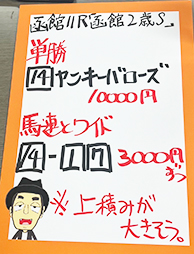 函館11R函館2歳S。
単勝
14ヤンキーバローズ
10000円
馬連とワイド
14-1 7 3000円
ずつ
※上積みが
大きそう。